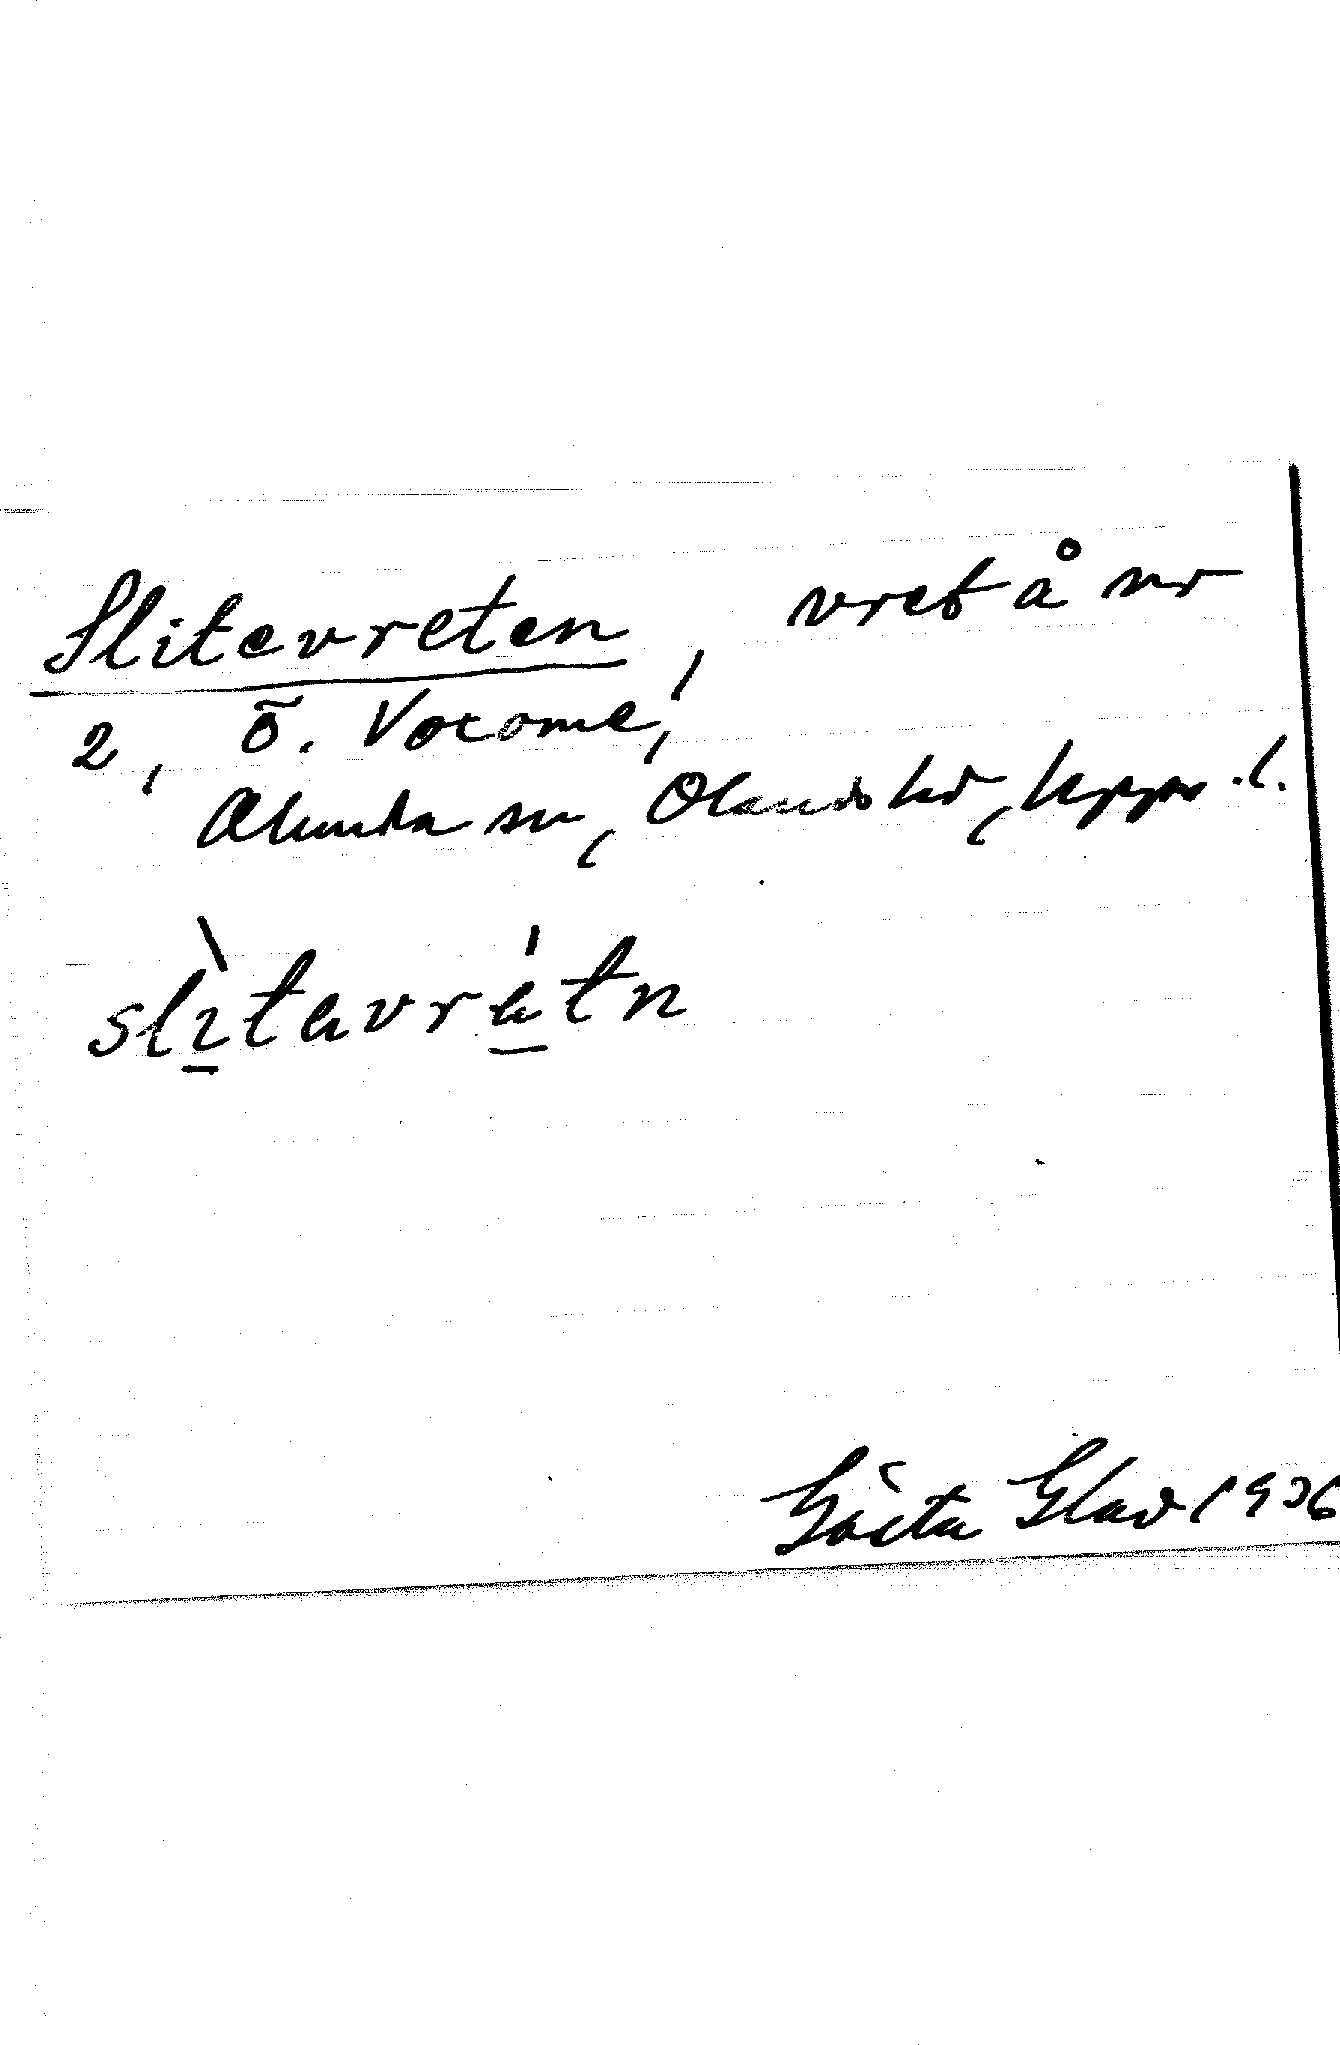 Slitevreten, vret å nr
2, Ö. Vocome,
Alunda sn, Olands hd, Upps. l.
slìtavrátn
Gösta Glad 1936